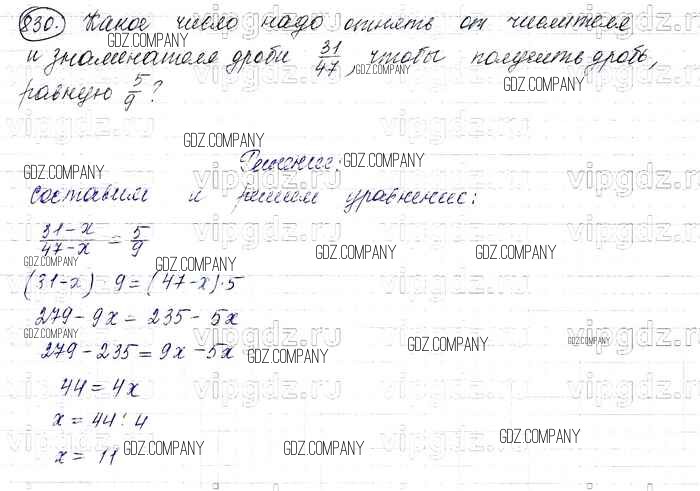 830. Какое число надо отнять от числителя
и знаменателя дроби 31/47, чтобы получить дробь,
равную 5/9?
Решение:
составим и решим уравнение:
(31-x)/(47-x) = 5/9
(31-x) · 9 = (47-x) · 5
279 - 9x = 235 - 5x
279 - 235 = 9x - 5x
44 = 4x
x = 44 : 4
x = 11
GDZ.COMPANY
vipgdz.ru